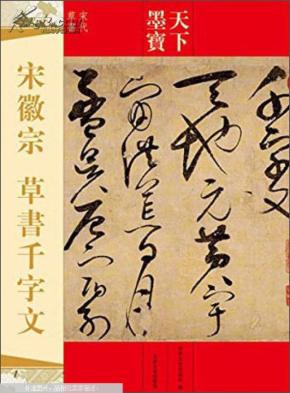 宋代
草書
天下
墨寶
宋徽宗 草書千字文
千字文
天地玄黃宇
宙洪荒日月
盈昃辰宿列